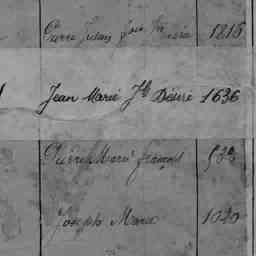 Pierre Julien José Marie 1216
Jean Marie Jh Désiré 1636
Pierre Marie françois
Joseph Marie 1020